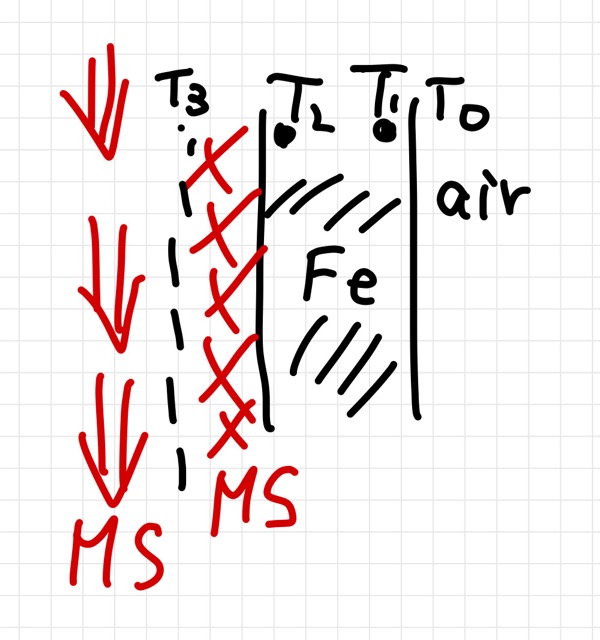 T3 T2 T1 T0
air
Fe
MS
MS